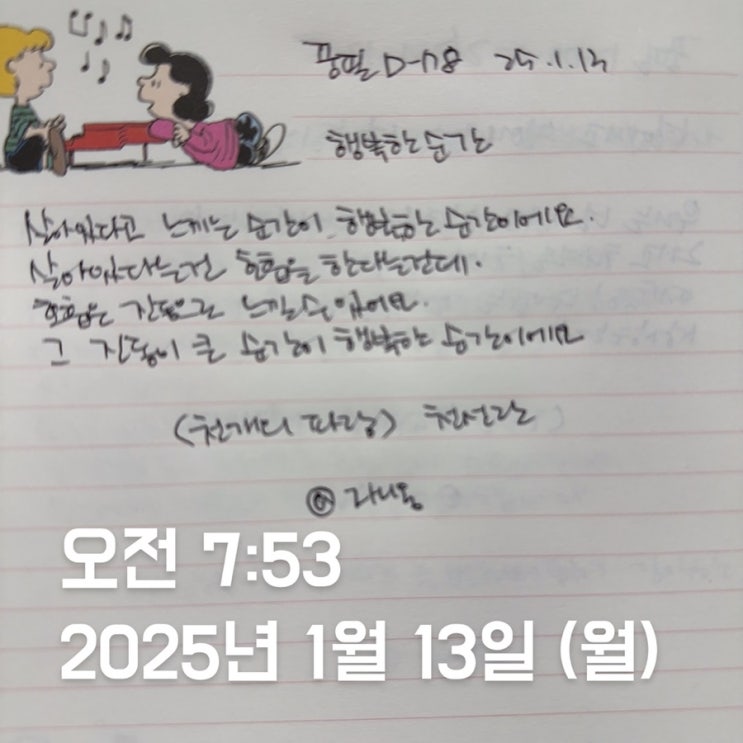 풍필 D-178 25.1.13
행복한 순간
살아있다고 느끼는 순간이 행복한 순간이에요.
살아있다는건 호흡을 한다는건데.
호흡은 진동으로 느낄 수 있어요.
그 진동이 큰 순간이 행복한 순간이에요
(천개의 파랑) 천선란
@ 라니옹
오전 7:53
2025년 1월 13일 (월)